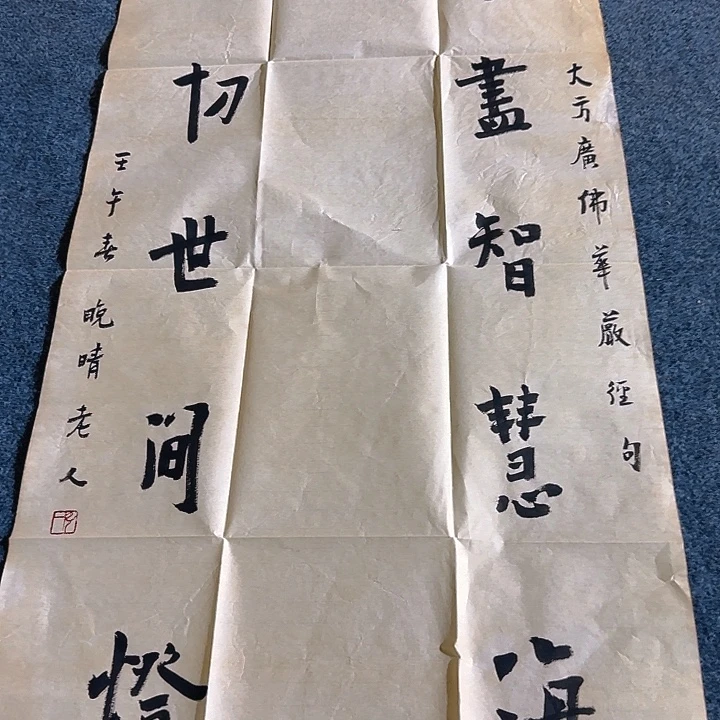 大方廣佛華嚴經句
盡智慧海
切世間燈
壬午春晚晴老人